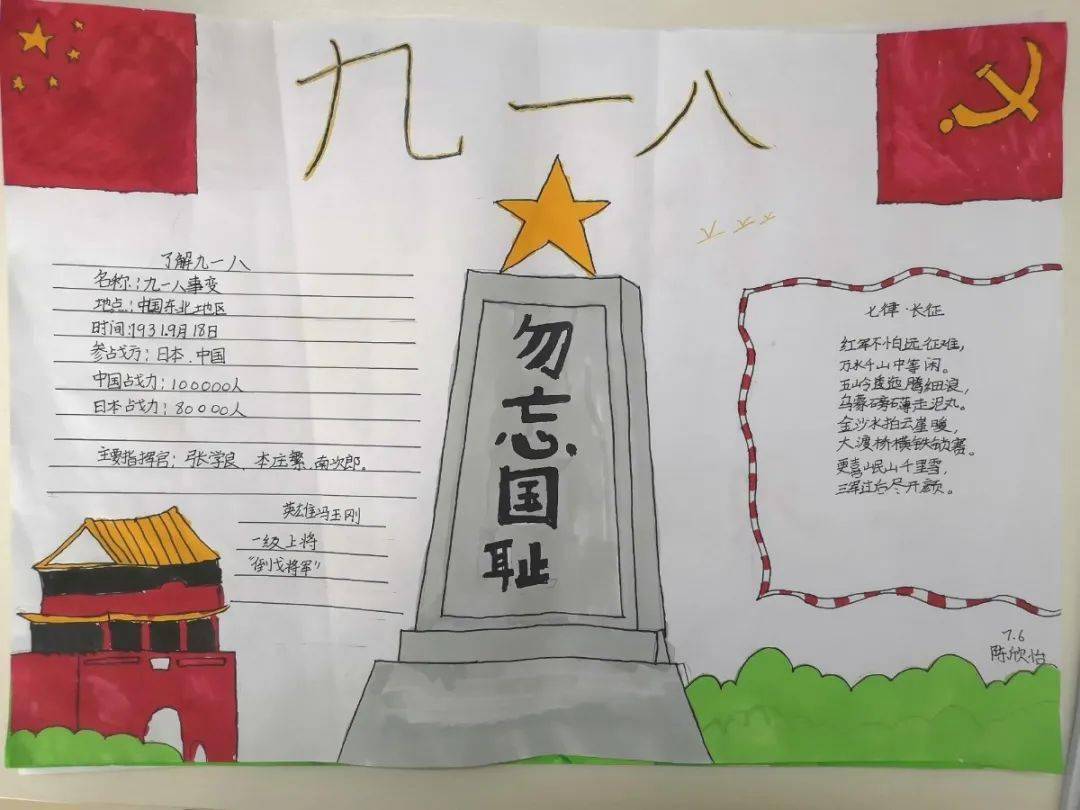 九一八
了解九一八
名称：九一八事变
地点：中国东北地区
时间：1931.9月18日
参占戈方：日本.中国
中国占戈力：100000人
日本占戈力：80000人
主要指挥官；张学良、本庄繁、南次郎。
英雄冯玉刚
一级上将
“倒戈将军”
勿
忘
国
耻
七律·长征
红军不怕远征难，
万水千山中等闲。
五山今逶迤腾细浪，
乌蒙磅礴走泥丸。
金沙水拍云崖暖，
大渡桥横铁锁寒。
更喜岷山千里雪，
三军过后尽开颜。
7.6
陈欣怡